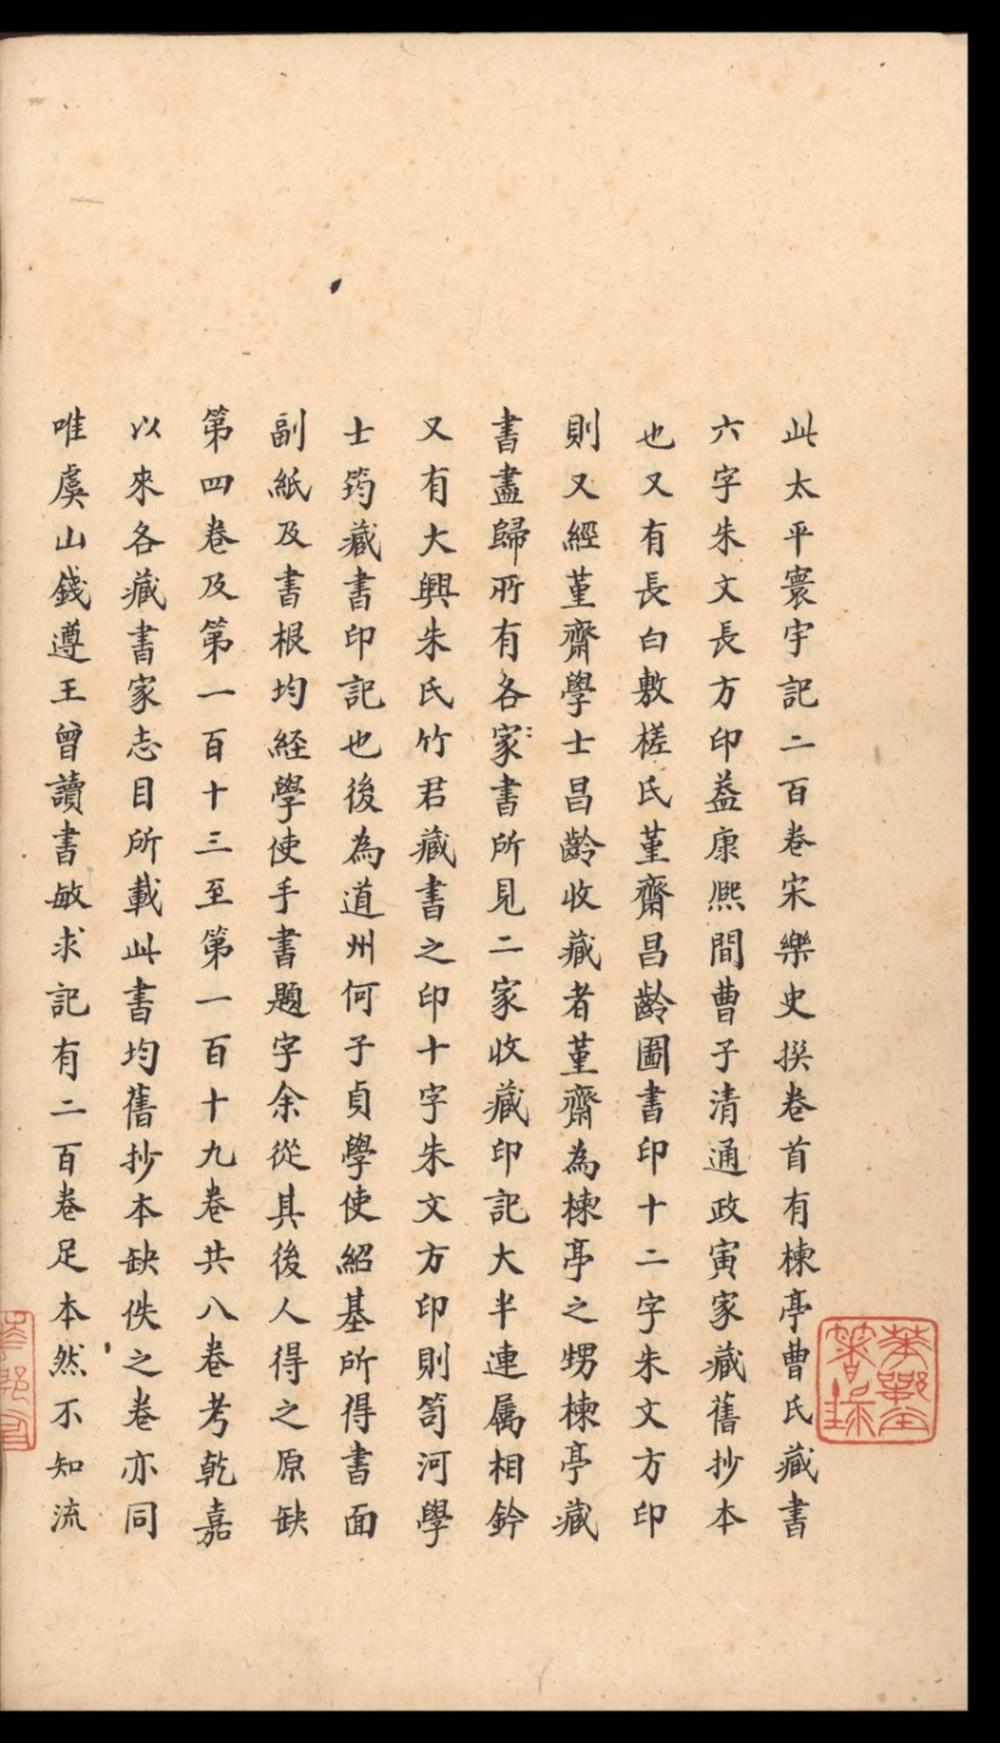 此太平寰宇記二百卷宋樂史撰卷首有楝亭曹氏藏書
六字朱文長方印葢康熙間曹子清通政寅家藏舊抄本
也又有長白敷槎氏堇齋昌齡圖書印十二字朱文方印
則又經堇齋學士昌齡收藏者堇齋為楝亭之甥楝亭藏
書盡歸所有各家書所見二家收藏印記大半連屬相鈐
又有大興朱氏竹君藏書之印十字朱文方印則笥河學
士筠藏書印記也後為道州何子貞學使紹基所得書面
副紙及書根均経學使手書題字余從其後人得之原缺
第四卷及第一百十三至第一百十九卷共八卷考乾嘉
以來各藏書家志目所載此書均舊抄本缺佚之卷亦同
唯虞山錢遵王曾讀書敏求記有二百卷足本然不知流